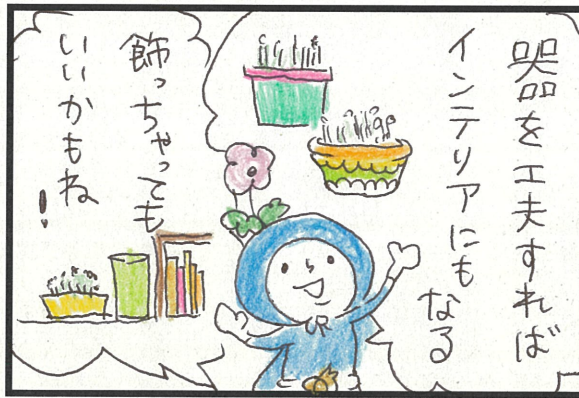 器を工夫すれば
インテリアにも
なる
飾っちゃっても
いいかもね!